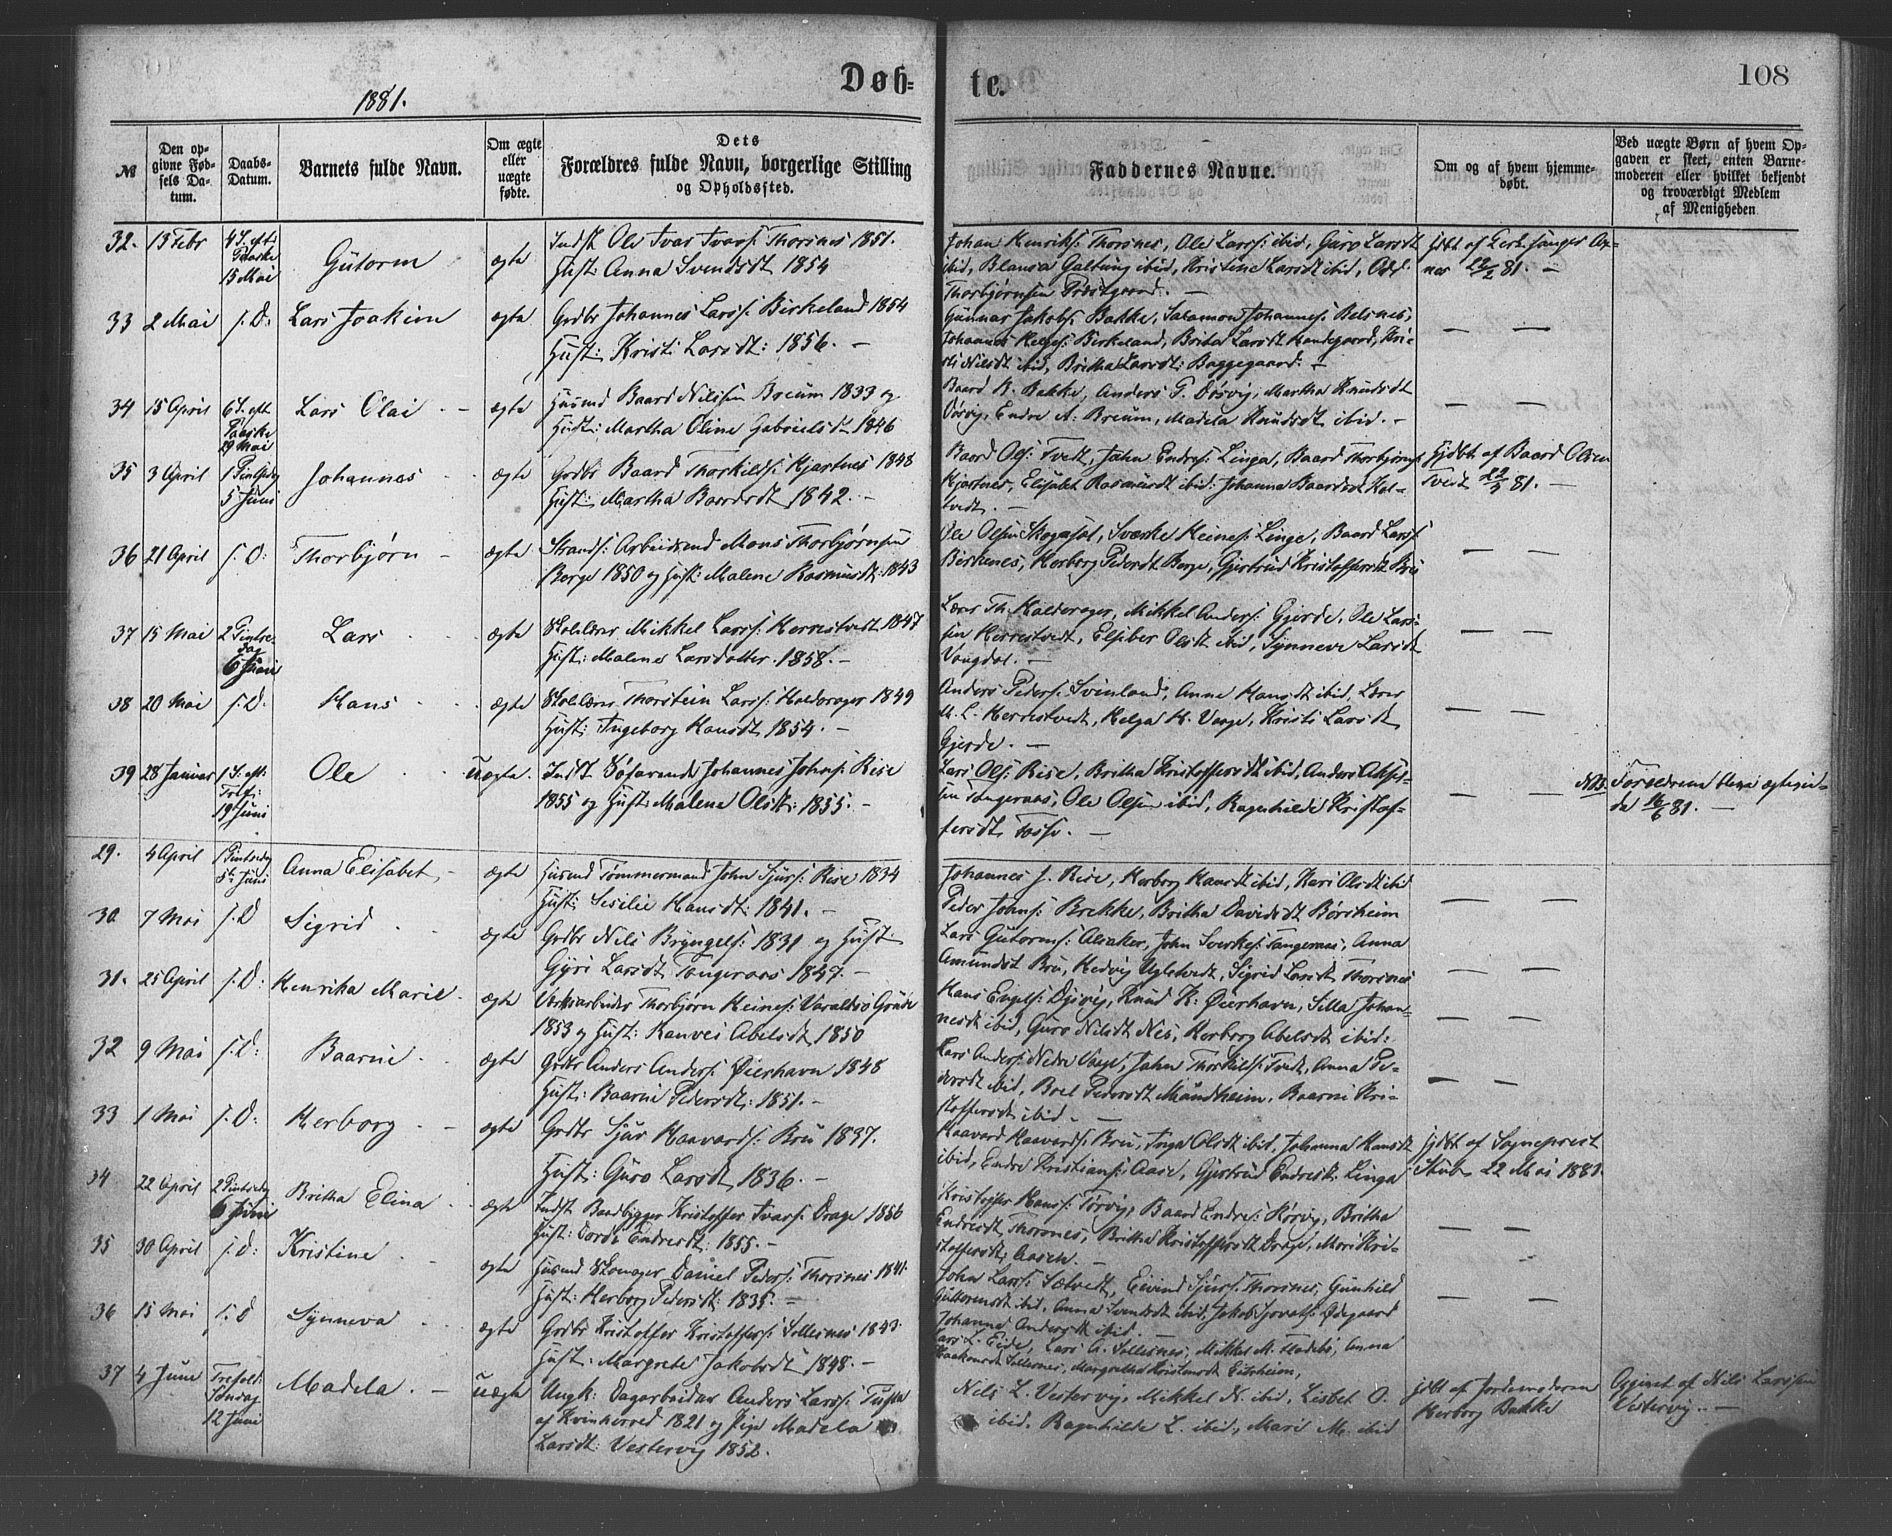 1881.
Døb=
te.
108
№
Den op-
givne Fød-
sels Da-
tum.
Daabs-
Datum.
Barnets fulde Navn.
Om ægte
eller
uægte
fødte.
Dets
Forældres fulde Navn, borgerlige Stilling
og Opholdssted.
Faddernes Navne.
Om og af hvem hjemme-
døbt.
Ved uægte Børn af hvem Op-
gaven er skeet, enten Barne-
moderen eller hvilket bekjendt
og troværdigt Medlem
af Menigheden
32. 13 Febr 4 S. eft: Paaske 15 Mai Gutorm ægte
Indst Ole Ivar Ivars: Thorsnes 1851.
Hust: Anna Svendsdt 1854
Johan Henriks: Thorsnes, Ole Larss: ibid, Guro Larsdt
ibid, Blansa Galtung ibid, Kristine Larsdt ibid, Odd
Thorbjørnsen
hjdbt af
22/2 81. —
33 2 Mai s. D: Lars Joakim ægte
Grdbr Johannes Larss: Birkeland 1854
Hust: Kristi Larsdt: 1856. —
Gunnar Jakobs: Bakke, Salamon Johanness: Belsnes,
Johannes Helges: Birkeland, Brita Larsdt Handegaard, Kri-
sti Nilsdt ibid, Britha Larsdt: Baggegaard. —
— —
34 15 April 6 S. eft Paaske 29 Mai Lars Olai ægte
Husmd Baard Nilsen Breum 1833 og
Hust: Martha Oline Gabrielsdt 1846
Baard N. Bakke, Anders T. Døsvig, Martha Knudsdt
Døsvig, Endre A: Breum, Madela Knudsdt ibid. —
— —
35 3 April 1 Pintsedg 5 Juni Johannes ægte
Grdbr Baard Thorkilds: Kjartnes 1848
Hust: Martha Baardsdt 1842. —
Baard Ols: Tvedt, John Endres: Linga, Baard Thorbjørns:
Kjartnes, Elisabet Rasmusdt ibid: Johanna Baardsdt Hal-
tvedt. —
Hjdbt af Baard Olsen
Tvedt 22/4 81. —
36 21 April s. D: Thorbjørn ægte
Strands: Arbeidsmd Mons Thorbjørnsen
Berge 1850 og Hust: Malene Rasmusdt: 1843
Ole Olsen Skogasel, Sverke Heines: Linge, Baard Larss:
Birkenes, Herborg Pedersdt Berge, Gjertrud Kristoffersdt
— —
37 15 Mai 2 Pintse- dag 6 Juni Lars ægte
Skolelærer Mikkel Larss: Herrestvedt 1847
Hust: Malene Larsdatter 1858. —
Lærer Th. Halderager, Mikkel Anders: Gjerde, Ole Lars-
sen Herrestvedt, Elsiber Olsdt ibid, Synneve Larsdt
Vangdal. —
— —
38 20 Mai s. D. Hans ægte
Skolelærer Thorstein Larss: Halderager 1849
Hust: Ingeborg Hansdt 1854. —
Anders Peders: Svinland, Anne Hansdt ibid, Lærer
M. L. Herrestvedt, Helga H. Vage, Kristi Larsdt
Gjerde. —
— —
39 28 Januar 1 S. eft: Tref: 19 Juni Ole uægte.
Indst Søfarende Johannes Johns: Rise
1855 og Hust: Malena Olsdt: 1855. —
Lars Ols: Rise, Britha Kristoffersdt ibid, Anders Aksel-
sen Tangeraas, Ole Olsen ibid, Ragnhilde Kristof-
fersdt Fosse. —
— —
NB. Forældrene bleve ægtevi-
de 16/6 81. —
29. 4 April 1 Pintsedg 5te Juni Anna Elisabet ægte
Husmd Tømmermand John Sjurs: Rise 1834
Hust: Sesilie Hansdt: 1841. —
Johannes J. Rise, Herborg Hansdt ibid, Kari Olsdt ibid
Peder Johns: Brekke, Britha Davidsdt Børsheim
— —
30 7 Mai s. D Sigrid ægte
Grdbr Nils Bryngels: 1831 og Hust:
Gjøri Larsdt Tangeraas 1847. —
Lars Gutorms: Alsaker, John Sverkes: Tangeraas, Anna
Amundsdt Bru, Hedvig Uglatvedt, Sigrid Larsdt Thorsnes
— —
31. 25 April s. D: Henrika Marie ægte
Verksarbeider Thorbjørn Heines: Varaldsø Grube
1853 og Hust: Ranvei Abelsdt 1850
Hans Engels: Djuvig, Knud K: Øierhavn, Silla Johan-
nesdt ibid, Guro Nilsdt Nes, Herborg Abelsdt ibid:
— —
32 9 Mai s. D: Baarni ægte
Grdbr Anders Anders: Øierhavn 1848
Hust: Baarni Pedersdt: 1851. —
Lars Anders: Nedre Vage, John Thorkills: Tvedt, Anna Pe-
dersdt ibid, Brel Pedersdt Mundheim, Baarni Kri-
stoffersdt ibid. —
— —
33 1 Mai s. D: Herborg ægte
Grdbr Sjur Haavards: Bru 1837.
Hust: Guro Larsdt 1836. —
Haavard Haavards: Bru, Inga Olsdt ibid, Johanna Hansdt
ibid, Endre Kristians: Aase, Gjertrud Endresdt: Linga
hjdbt af Sognepræst
Skub 22 Mai 1881
34 22 April 2 Pintsedg 6 Juni Britha Elina ægte
Indst Baadbygger Kristoffer Ivars: Drage 1856
Hust: Dorde Endresdt: 1855. —
Kristoffer Hanss: Tørvig, Baard Endres: Hørvig, Britha
Endresdt Thorsnes, Britha Kristoffersdt Drage, Mari Kri-
stoffersdt, Aasen. —
— —
35 30 April s. D: Kristine ægte
Husmd Skomager Daniel Peders: Thorsnes 1841.
Hust: Herborg Pedersdt: 1835. —
John Larss: Sætvedt, Eivind Sjurs: Thorsnes, Gunhild
Guttormsdt ibid, Anna Svendsdt ibid, Jakob Ødegaard
Johanna Andersdt ibid. —
— —
36 15 Mai s. D Synneva ægte
Grdbr Kristoffer Kristoffers: Sollesnes 1843.
Hust: Margrete Jakobsdt 1848. —
Lars L. Eide, Lars A. Sollesnes, Mikkel M. Fladebø, Anna
Haakonsdt Sollesnes, Margretha Kristensdt Eitrheim,
37 4 Juni Trefold: Søndag 12 Juni Madela uægte
Ungk: Dagarbeider Anders Larss:
af Kvinherred 1821 og Pige Madela
Larsdt: Vestervig 1852.
Nils L. Vestervig, Mikkel N. ibid, Lisbet O.
ibid, Ragnhilde L. ibid, Mari M. ibid
hjdbt af Jordemoderen
Herborg Bakke
Opgivet af Nils Larssen
Vestervig. —